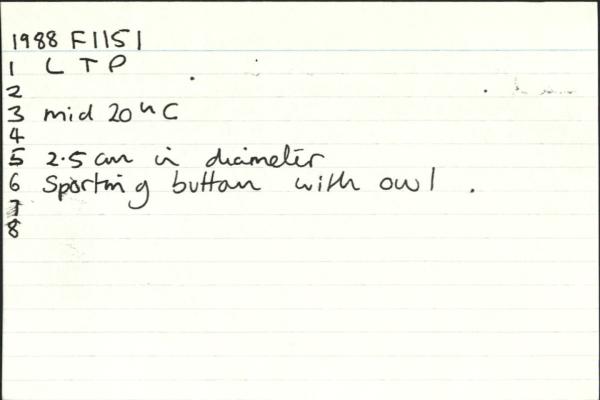 1988 F1151
1 L T P
2
3 mid 20th C
4
5 2.5 cm in diameter
6 Sporting button with owl .
7
8